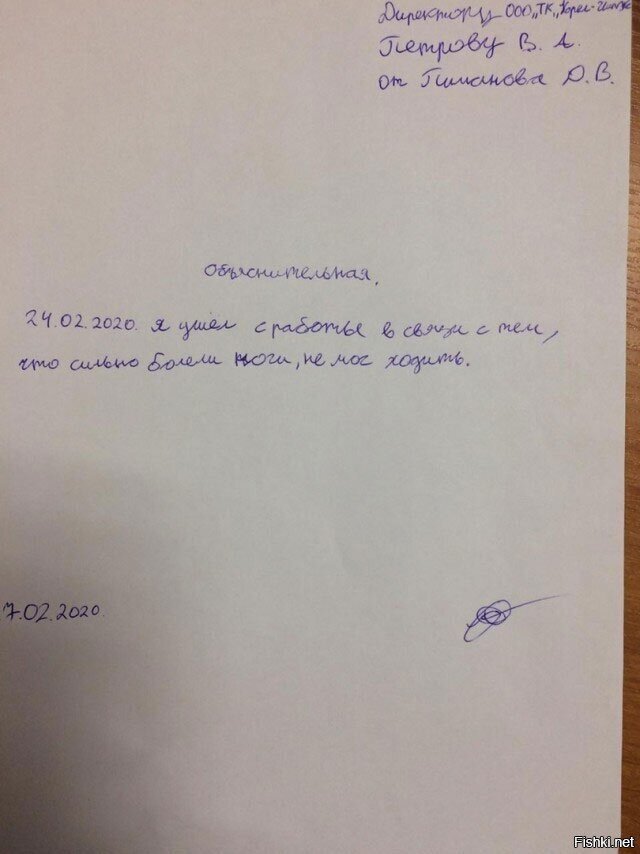 Директору ООО „ТК „
Петрову В. А.
от Пиманова Д. В.
Объяснительная.
24.02.2020. я ушел с работье в связи с тем,
что сильно болели ноги, не мог ходить.
7.02.2020.
Fishki.net